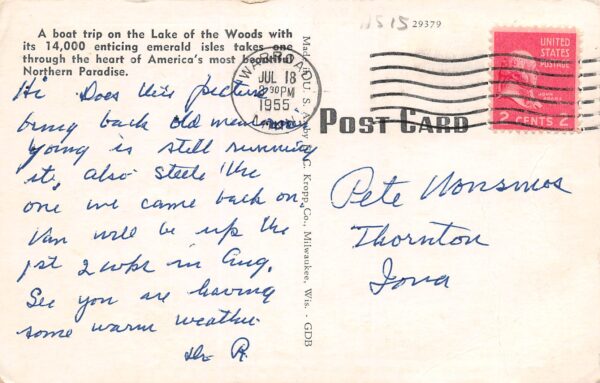 A boat trip on the Lake of the Woods with
its 14,000 enticing emerald isles takes one
through the heart of America's most beautiful
Northern Paradise.
HS 15
29379
WARROAD
JUL 18
PM
1955
UNITED
STATES
POSTAGE
2 CENTS 2
POST CARD
Hi Does this picture
bring back old memories
Young is still running
it, also Steele the
one we came back on,
Van will be up the
1st 2 wks in Aug.
See you are having
some warm weather
Dr R.
Made in U. S. A. by E. C. Kropp Co., Milwaukee, Wis. - GDB
Pete
Thornton
Iowa